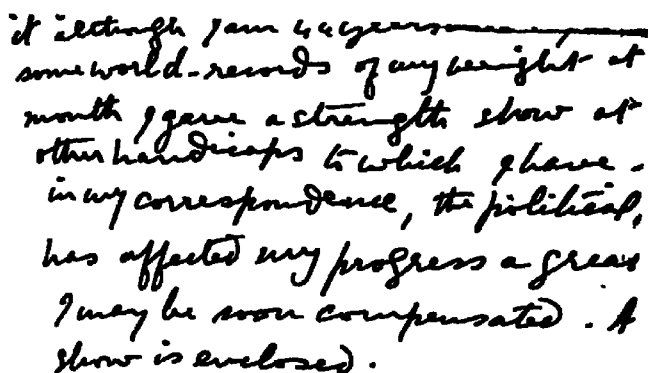 it although I am 44 years
some world-records of my weight at
month I gave a strength show at
other handicaps to which I have
in my correspondence, the political,
has affected my progress a great
I may be soon compensated. A
show is enclosed.